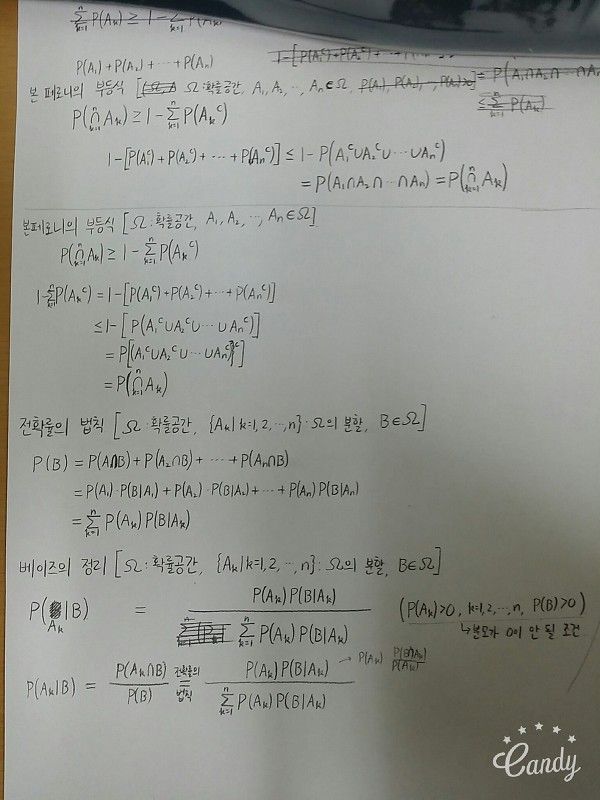 P(A₁)+P(A₂)+ ⋯ +P(Aₙ)
본페로니의 부등식 [Ω:확률공간, A₁, A₂, ⋯, Aₙ∈Ω,
= P(A₁∩A₂∩ ⋯ ∩Aₙ
P(∩ₖ₌₁ⁿ Aₖ) ≥ 1-∑ₖ₌₁ⁿ P(Aₖᶜ)
1-[P(A₁ᶜ)+P(A₂ᶜ)+ ⋯ +P(Aₙᶜ)] ≤ 1-P(A₁ᶜ∪A₂ᶜ∪ ⋯ ∪Aₙᶜ)
= P(A₁∩A₂∩ ⋯ ∩Aₙ) = P(∩ₖ₌₁ⁿ Aₖ)
본페로니의 부등식 [Ω:확률공간, A₁, A₂, ⋯, Aₙ∈Ω]
P(∩ₖ₌₁ⁿ Aₖ) ≥ 1-∑ₖ₌₁ⁿ P(Aₖᶜ)
1-∑ₖ₌₁ⁿ P(Aₖᶜ) = 1-[P(A₁ᶜ)+P(A₂ᶜ)+ ⋯ +P(Aₙᶜ)]
≤ 1-[P(A₁ᶜ∪A₂ᶜ∪ ⋯ ∪Aₙᶜ)]
= P[(A₁ᶜ∪A₂ᶜ∪ ⋯ ∪Aₙᶜ)ᶜ]
= P(∩ₖ₌₁ⁿ Aₖ)
전확률의 법칙 [Ω:확률공간, {Aₖ|k=1, 2, ⋯, n}:Ω의 분할, B∈Ω]
P(B) = P(A₁∩B)+P(A₂∩B)+ ⋯ +P(Aₙ∩B)
= P(A₁)·P(B|A₁)+P(A₂)·P(B|A₂)+ ⋯ +P(Aₙ)P(B|Aₙ)
= ∑ₖ₌₁ⁿ P(Aₖ)P(B|Aₖ)
베이즈의 정리 [Ω:확률공간, {Aₖ|k=1, 2, ⋯, n}:Ω의 분할, B∈Ω]
P(Aₖ|B) = P(Aₖ)P(B|Aₖ) / ∑ₖ₌₁ⁿ P(Aₖ)P(B|Aₖ) (P(Aₖ)>0, k=1, 2, ⋯, n, P(B)>0)
↳분모가 0이 안 될 조건
P(Aₖ|B) = P(Aₖ∩B) / P(B) 전확률의 법칙 = P(Aₖ)P(B|Aₖ) / ∑ₖ₌₁ⁿ P(Aₖ)P(B|Aₖ) → P(Aₖ) P(B∩Aₖ) / P(Aₖ)
Candy